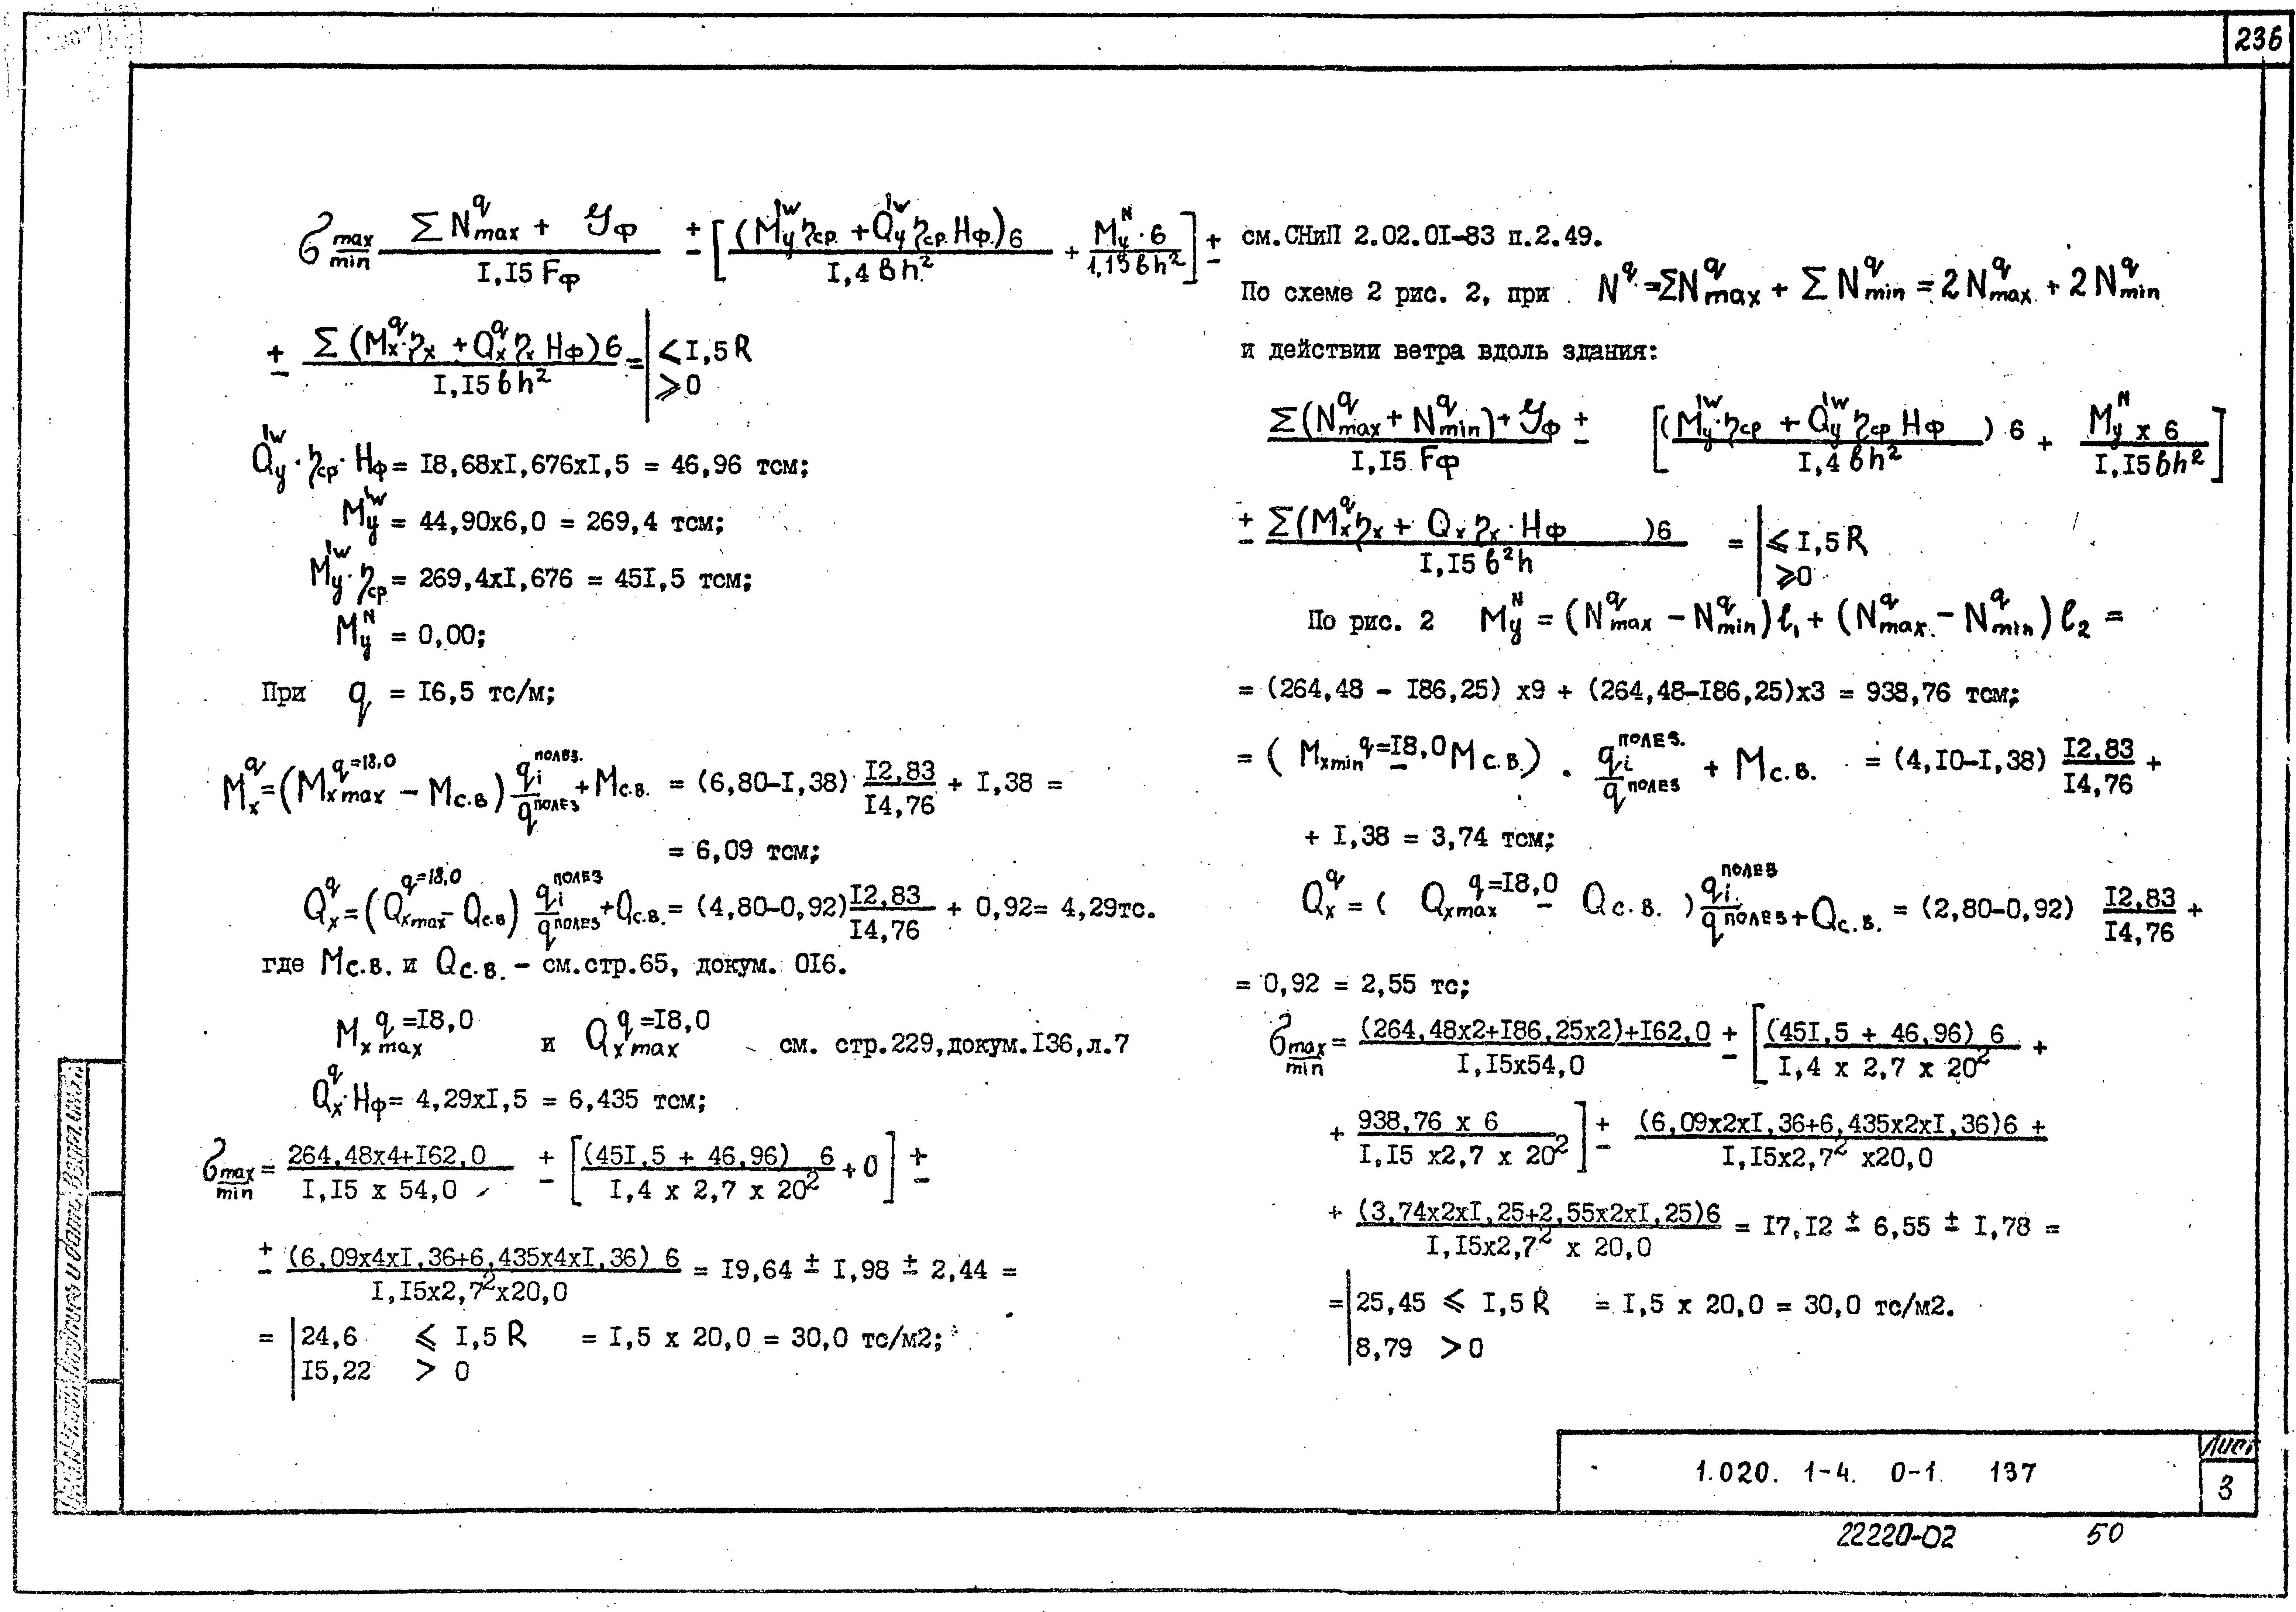 236
σ max/min (Σ N^q max + 𝒴ф)/(I,I5 Fф) ± [((M^Iw y ηср. + Q^Iw y ηср. Hф.)6)/(I,4 bh²) + (M^N y · 6)/(1,15 bh²)] ±
± (Σ (M^q x · ηx + Q^q x ηx Hф)6)/(I,I5 bh²) = | ≤ I,5 R
⩾ 0
Q^Iw y · ηср · Hф = I8,68xI,676xI,5 = 46,96 тсм;
M^Iw y = 44,90x6,0 = 269,4 тсм;
M^Iw y · ηср = 269,4xI,676 = 45I,5 тсм;
M^N y = 0,00;
При q = I6,5 тс/м;
M^q x = (M^q=18,0 x max − Mс.в) qi^полез. / q^полез + Mс.в. = (6,80-I,38) I2,83/I4,76 + I,38 =
= 6,09 тсм;
Q^q x = (Q^q=18,0 x max − Qс.в) qi^полез / q^полез + Qс.в. = (4,80-0,92) I2,83/I4,76 + 0,92= 4,29тс.
где Mс.в. и Qс.в. - см.стр.65, докум. 0I6.
M x max^q =I8,0 и Q x max^q =I8,0 см. стр.229,докум.I36,л.7
Q^q x · Hф = 4,29xI,5 = 6,435 тсм;
σ max/min = (264,48x4+I62,0)/(I,I5 x 54,0) ± [((45I,5 + 46,96) 6)/(I,4 x 2,7 x 20²) + 0] ±
± ((6,09x4xI,36+6,435x4xI,36) 6)/(I,I5x2,7²x20,0) = I9,64 ± I,98 ± 2,44 =
= | 24,6 ⩽ I,5 R = I,5 x 20,0 = 30,0 тс/м2;
I5,22 > 0
см.СНиП 2.02.0I-83 п.2.49.
По схеме 2 рис. 2, при N^q. = ΣN^q max + Σ N^q min = 2 N^q max. + 2 N^q min
и действии ветра вдоль здания:
(Σ(N^q max + N^q min) + 𝒴ф)/(I,I5 Fф) ± [((M^Iw y · ηср + Q^Iw y ηср Hф) 6)/(I,4 bh²) + (M^N y x 6)/(I,I5 bh²)]
± (Σ(M^q x ηx + Qx ηx · Hф )6)/(I,I5 b²h) = | ⩽ I,5 R
⩾ 0
По рис. 2 M^N y = (N^q max − N^q min) ℓ₁ + (N^q max. − N^q min) ℓ₂ =
= (264,48 - I86,25) x9 + (264,48-I86,25)x3 = 938,76 тсм;
= ( M x min^q=I8,0 - M с.в.) · qi^полез. / q^полез + Mс.в. = (4,I0-I,38) I2,83/I4,76 +
+ I,38 = 3,74 тсм;
Q^q x = ( Q x max^q=I8,0 - Qс.в. ) qi^полез / q^полез + Qс.в. = (2,80-0,92) I2,83/I4,76 +
= 0,92 = 2,55 тс;
σ max/min = ((264,48x2+I86,25x2)+I62,0)/(I,I5x54,0) ± [((45I,5 + 46,96) 6)/(I,4 x 2,7 x 20²) +
+ (938,76 x 6)/(I,I5 x2,7 x 20²)] ± ((6,09x2xI,36+6,435x2xI,36)6 +)/(I,I5x2,7² x20,0)
+ ((3,74x2xI,25+2,55x2xI,25)6)/(I,I5x2,7² x 20,0) = I7,I2 ± 6,55 ± I,78 =
= | 25,45 ⩽ I,5 R = I,5 x 20,0 = 30,0 тс/м2.
8,79 > 0
1.020. 1-4. 0-1. 137
Лист
3
22220-02 50